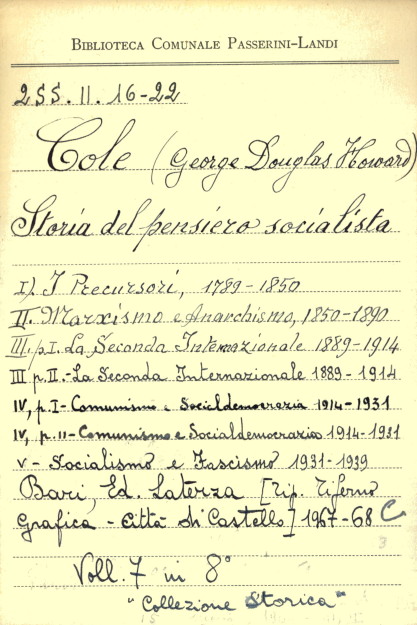 BIBLIOTECA COMUNALE PASSERINI-LANDI
2SS. II. 16-22
Cole (George Douglas Howard)
Storia del pensiero socialista
I) I Precursori, 1789-1850
II. Marxismo e Anarchismo, 1850-1890
III. p I. La Seconda Internazionale 1889-1914
III p. II. - La Seconda Internazionale 1889-1914
IV, p. I - Comunismo e Socialdemocrazia 1914-1931
IV, p. II - Comunismo e Socialdemocrazia 1914-1931
V - Socialismo e Fascismo 1931-1939
Bari, Ed. Laterza [Tip. Tiferno
Grafica - Città di Castello] 1967-68 C
3
Voll. 7 in 8°
"Collezione Storica"